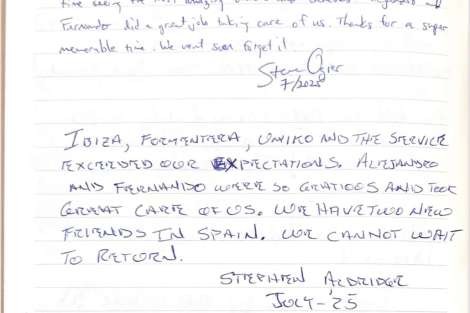 time seeing the most amazing
Fernando did a great job taking care of us. Thanks for a super
memorable time. We wont soon forget it.
Steve Ogier
7/2025
IBIZA, FORMENTERA, UNIKO AND THE SERVICE
EXCEEDED OUR EXPECTATIONS. ALEJANDRO
AND FERNANDO WERE SO GRATIOUS AND TOOK
GREAT CARE OF US. WE HAVE TWO NEW
FRIENDS IN SPAIN. WE CANNOT WAIT
TO RETURN.
STEPHEN ALDRIDGE
JULY-'25